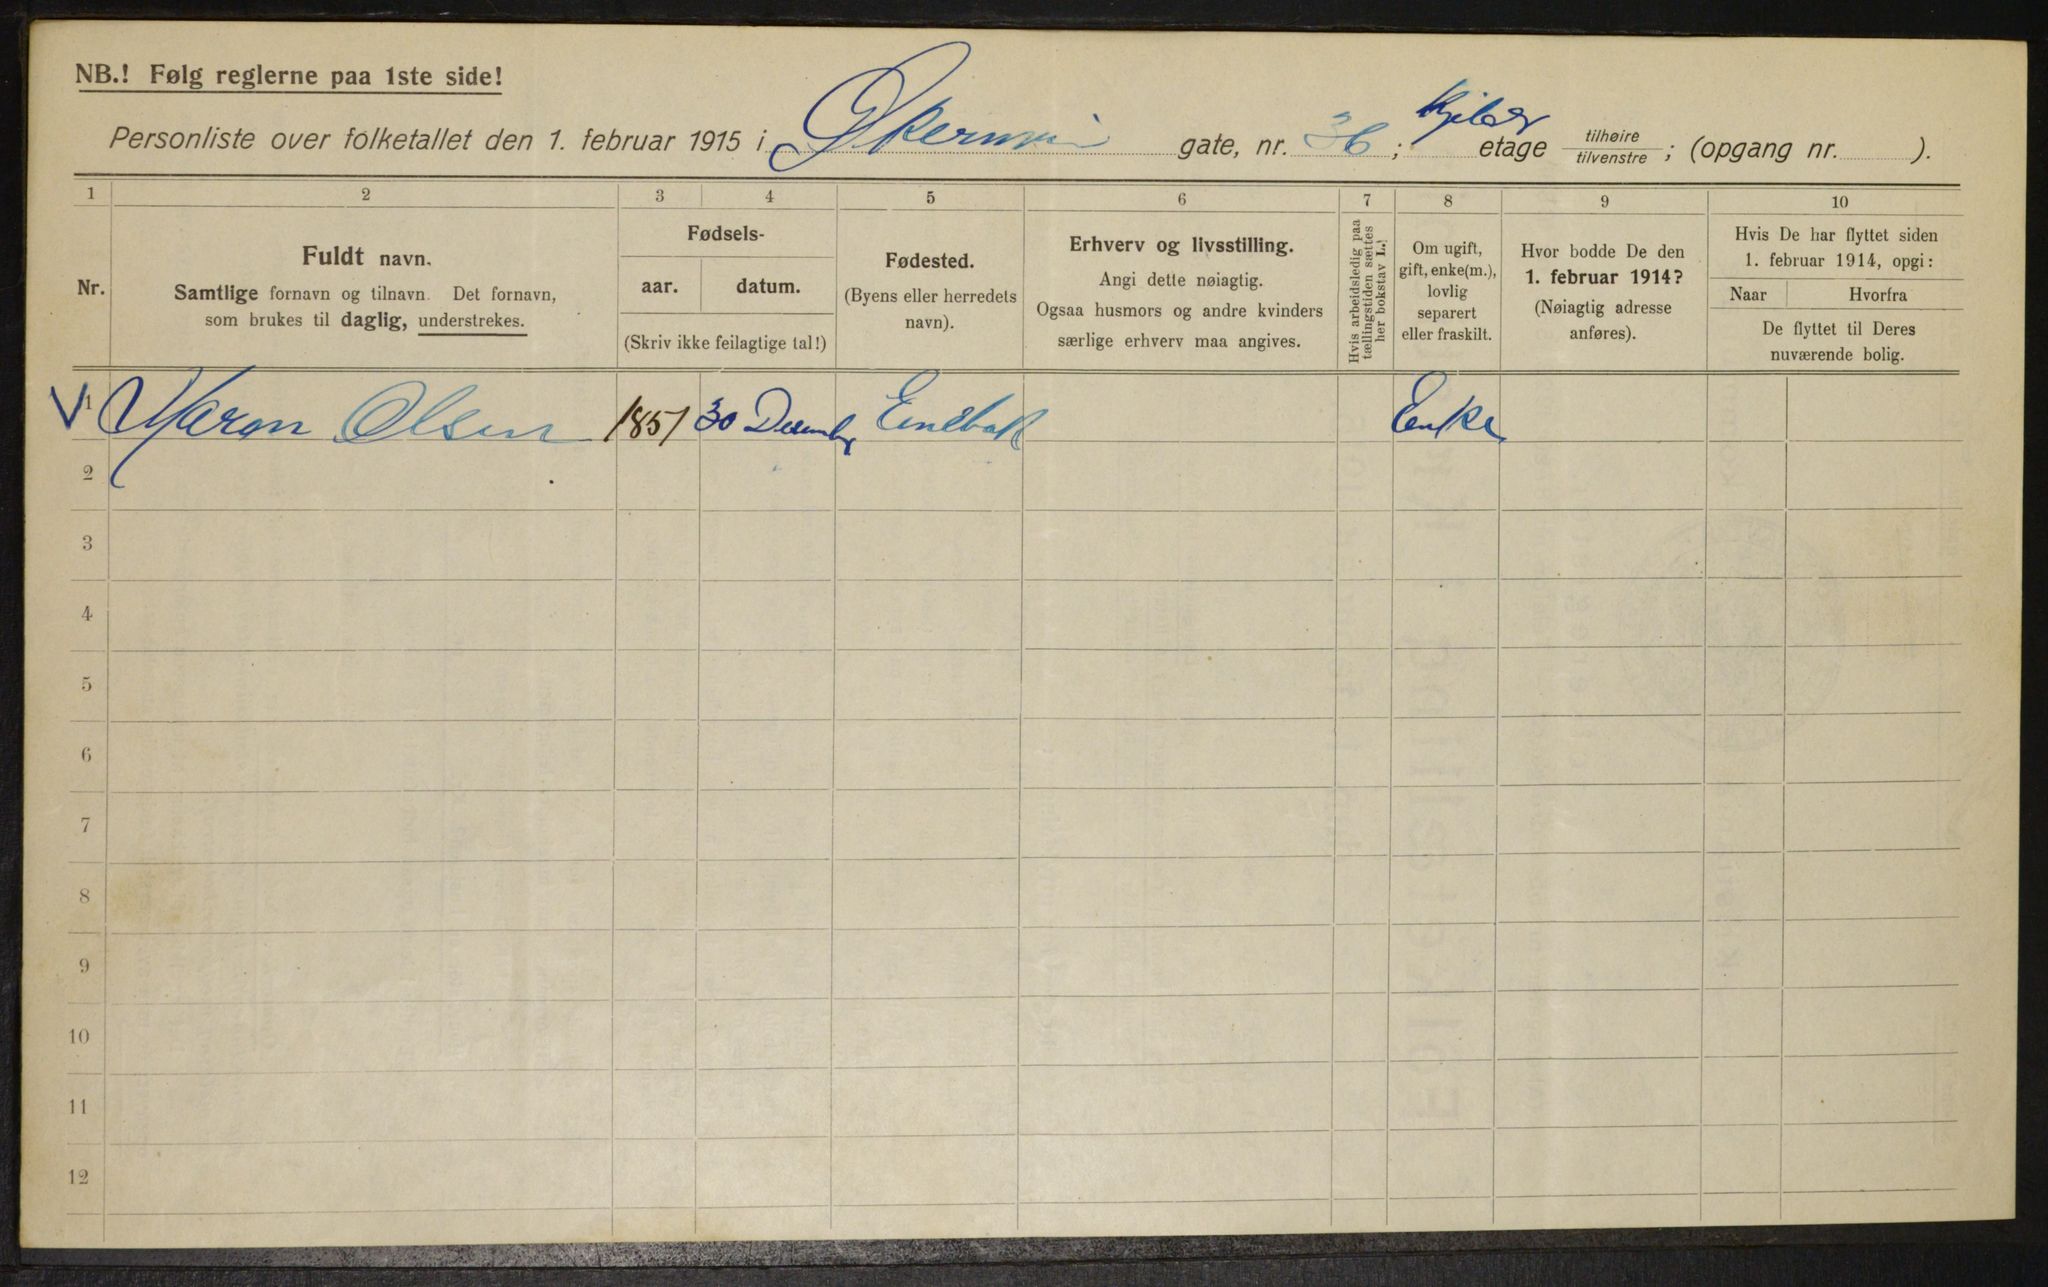 NB.! Følg reglerne paa 1ste side!
Personliste over folketallet den 1. februar 1915 i Økernvei gate, nr. 36; Kjelder etage tilhøire / tilvenstre; (opgang nr. ).
1 2 3 4 5 6 7 8 9 10
Nr.
Fuldt navn.
Samtlige fornavn og tilnavn. Det fornavn,
som brukes til daglig, understrekes.
Fødsels-
aar. datum.
(Skriv ikke feilagtige tal!)
Fødested.
(Byens eller herredets
navn).
Erhverv og livsstilling.
Angi dette nøiagtig.
Ogsaa husmors og andre kvinders
særlige erhverv maa angives.
Hvis arbeidsledig paa
tællingstiden sættes
her bokstav L.)
Om ugift,
gift, enke(m.),
lovlig
separert
eller fraskilt.
Hvor bodde De den
1. februar 1914?
(Nøiagtig adresse
anføres).
Hvis De har flyttet siden
1. februar 1914, opgi:
Naar Hvorfra
De flyttet til Deres
nuværende bolig.
1 Maren Olsen 1851 30 December Enebak Enke
2
3
4
5
6
7
8
9
10
11
12